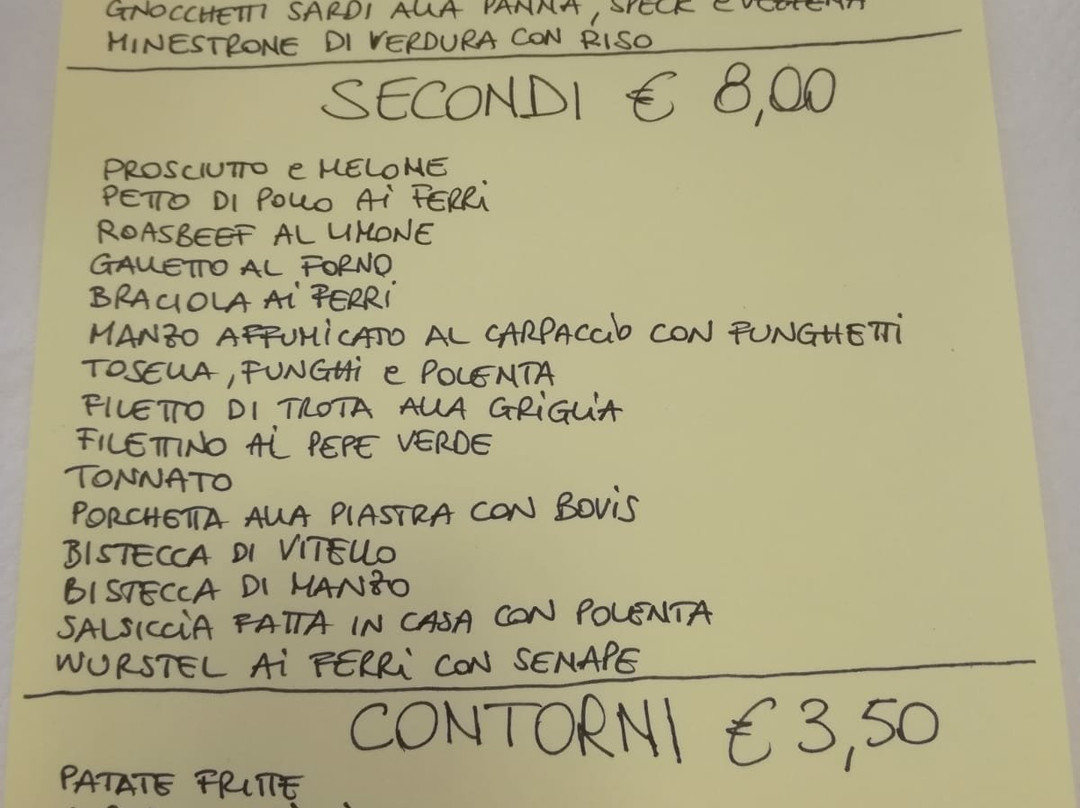 GNOCCHETTI SARDI ALLA PANNA, SPECK e VERZENA
MINESTRONE DI VERDURA CON RISO
SECONDI € 8,00
PROSCIUTTO e MELONE
PETTO DI POLLO Ai FERRi
ROASBEEF AL LIMONE
GALLETTO AL FORNO
BRACIOLA Ai FERRi
MANZO AFFUMiCATO AL CARPACCiO CON FUNGHETTi
TOSELLA, FUNGHi e POLENTA
FILETTO DI TROTA ALLA GRiGLiA
FILETTINO AL PEPE VERDE
TONNATO
PORCHETTA ALLA PIASTRA CON BOViS
BISTECCA DI VITELLO
BISTECCA DI MANZO
SALSICCiA FATTA IN CASA CON POLENTA
WURSTEL Ai FERRi CON SENAPE
CONTORNI € 3,50
PATATE FRITTE